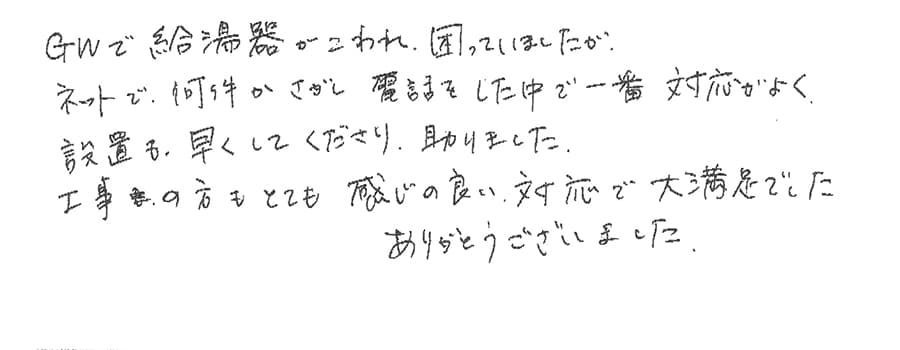 GWで給湯器がこわれ、困っていましたが、
ネットで、何件かさがし電話をした中で一番対応がよく、
設置も、早くしてくださり、助りました。
工事の方もとても感じの良い、対応で大満足でした
ありがとうございました。